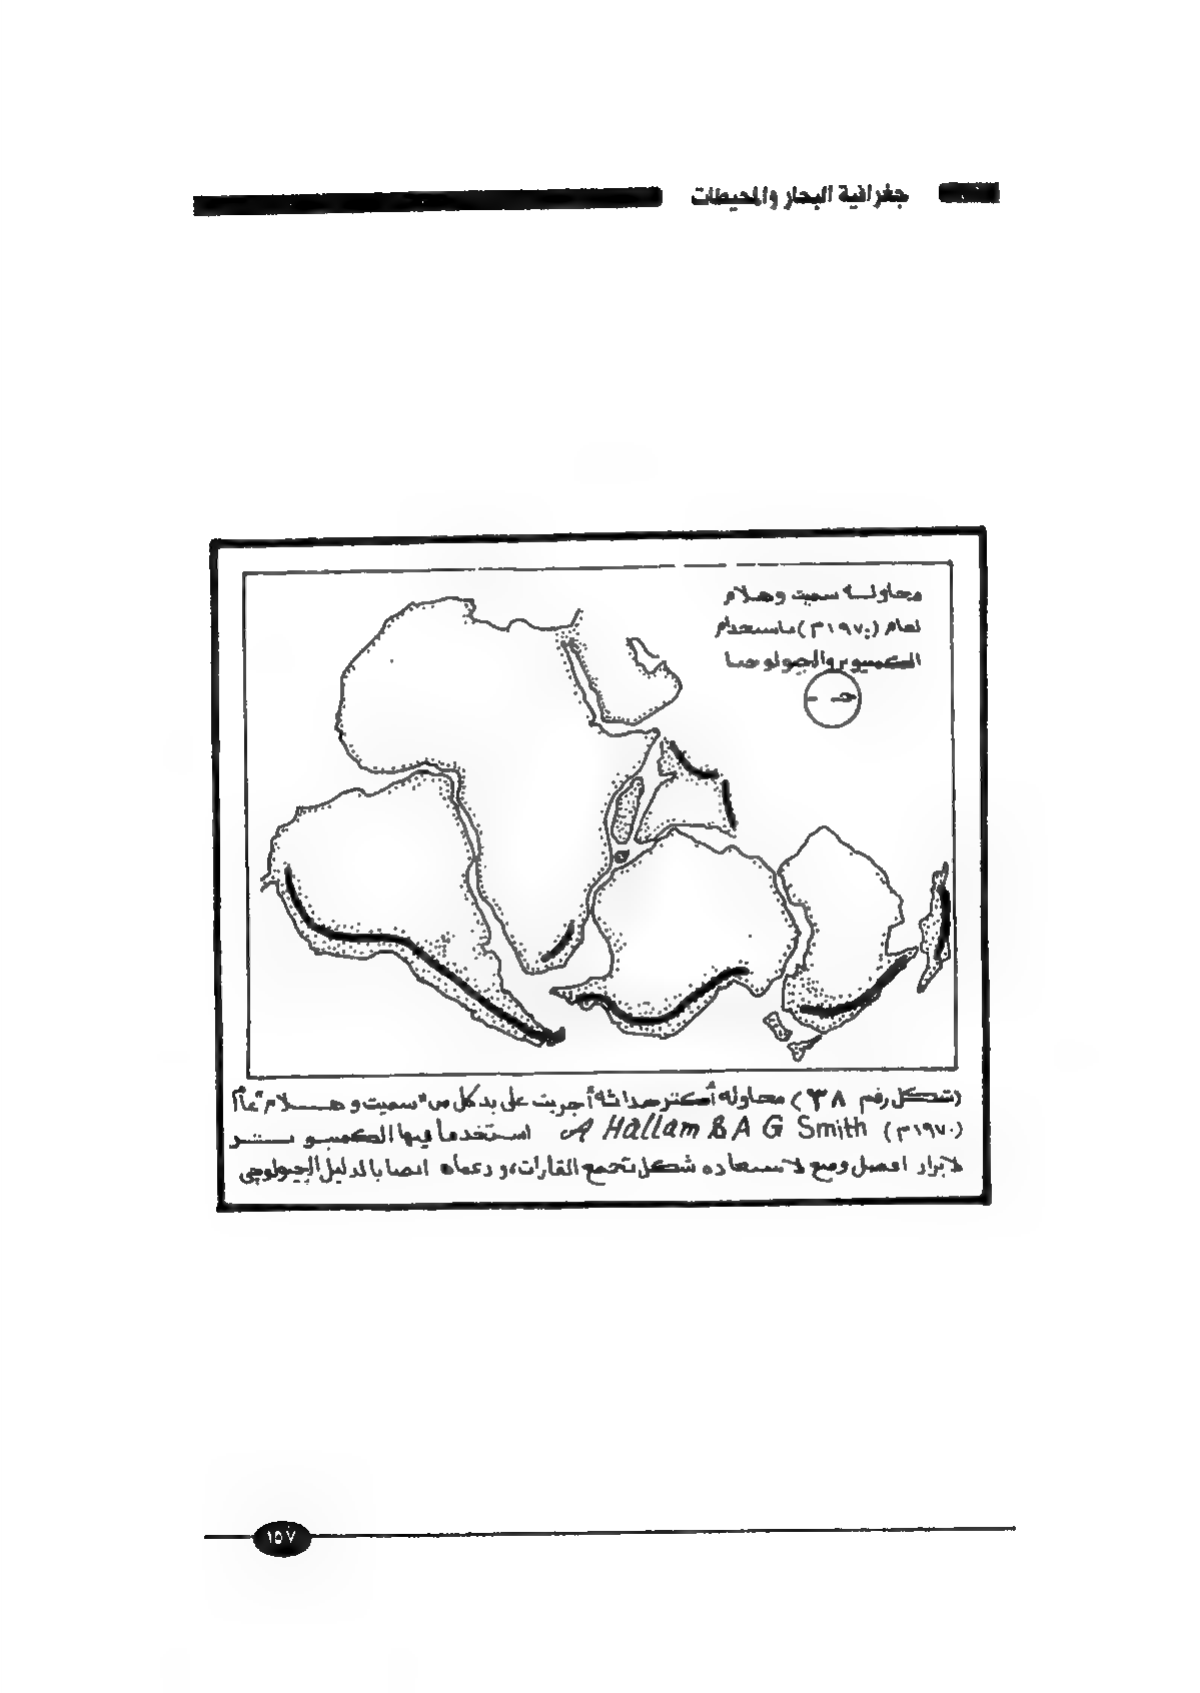 جغرافية البحار والمحيطات
محاولة سميث وهلام
لعام (١٩٧٠م) باستخدام
الكمبيوتر والجيولوجيا
جـ
(شكل رقم ٣٨) محاولة أكثر حداثة أجريت على يد كل من "سميث وهلام" عام
(١٩٧٠م) A Hallam & A G Smith استخدما فيها الكمبيوتر
لابراز افضل وضع لاستعادة شكل تجمع القارات، ودعماه ايضا بالدليل الجيولوجي
١٥٧